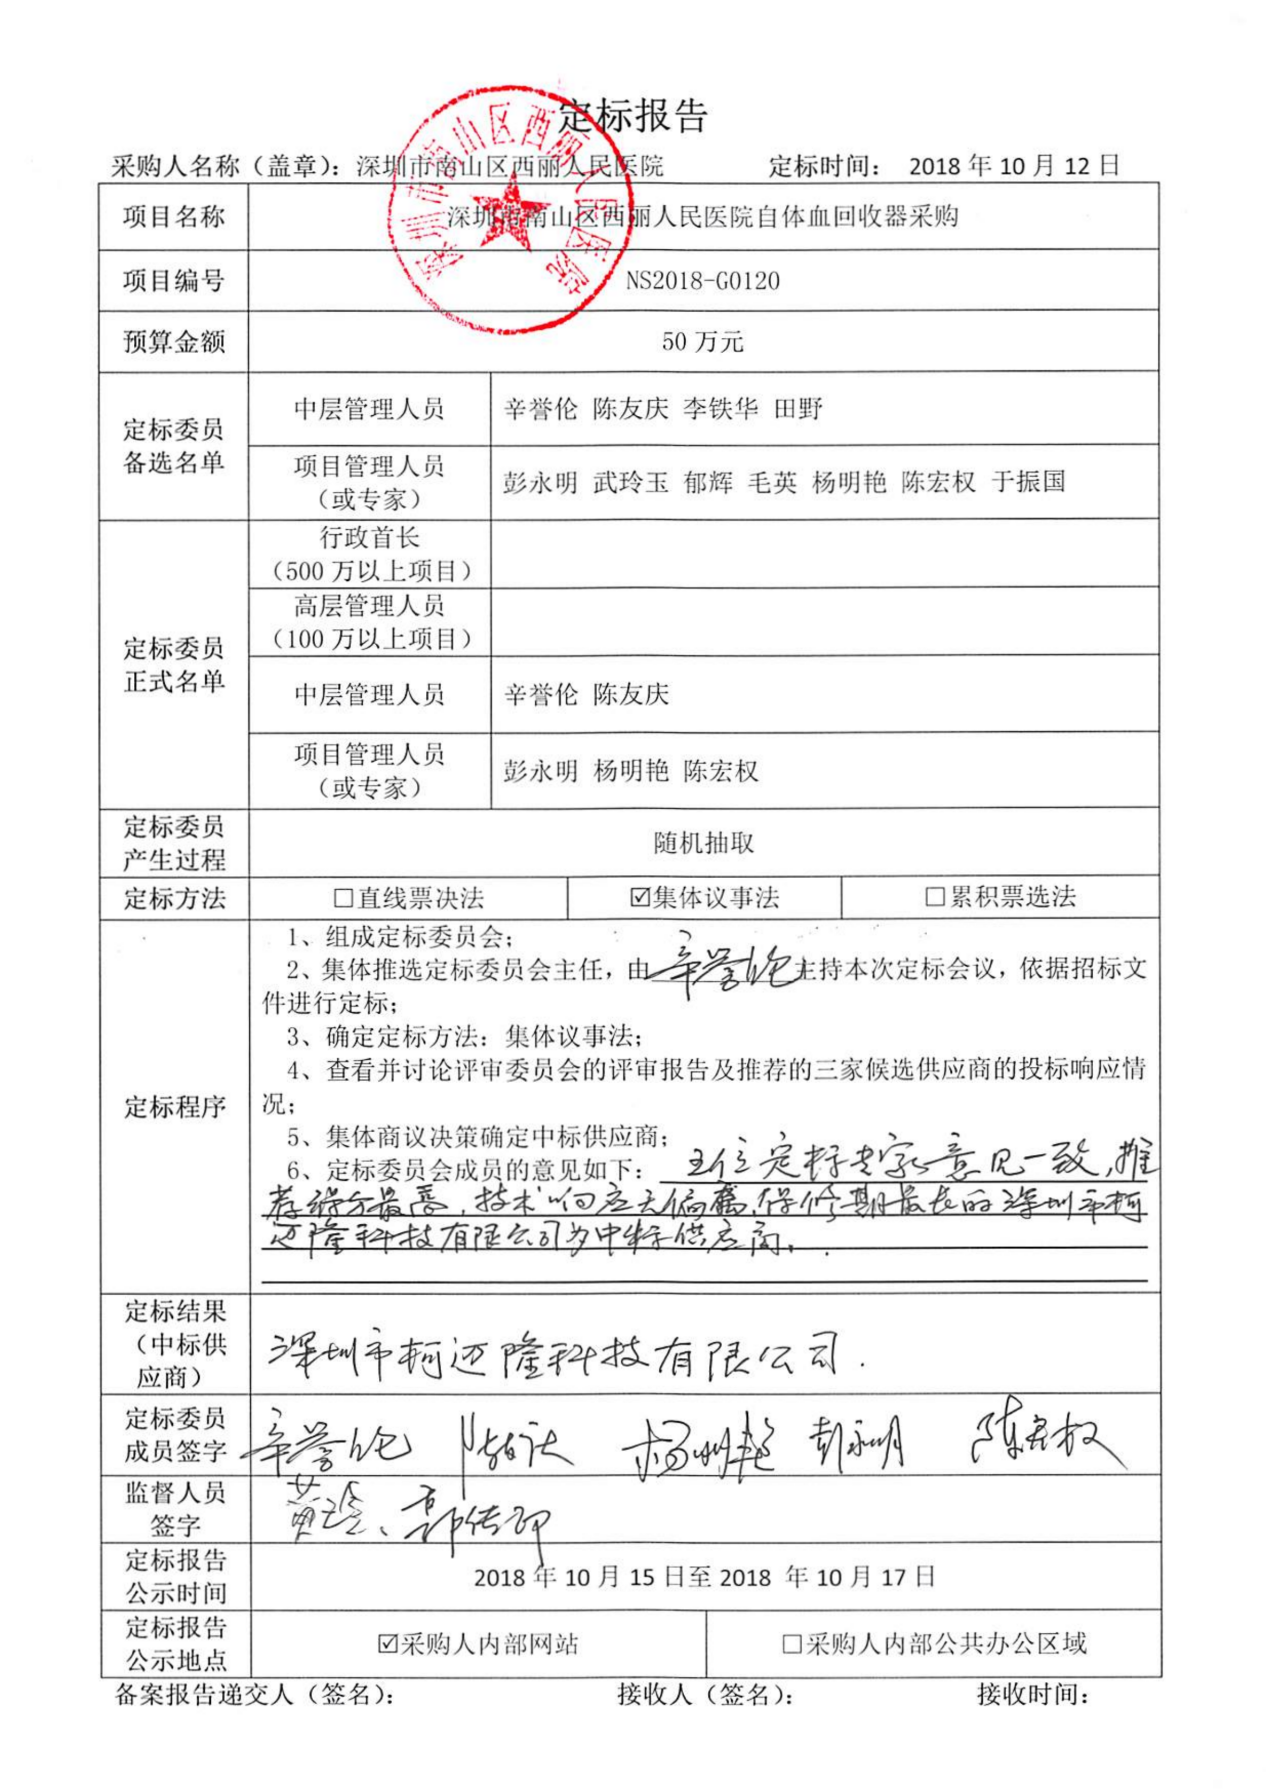 定标报告
采购人名称（盖章）：深圳市南山区西丽人民医院 定标时间： 2018 年 10 月 12 日
深圳市南山区西丽人民医院
项目名称 深圳市南山区西丽人民医院自体血回收器采购
项目编号 NS2018-G0120
预算金额 50 万元
定标委员
备选名单
中层管理人员 辛誉伦 陈友庆 李铁华 田野
项目管理人员
（或专家）
彭永明 武玲玉 郁辉 毛英 杨明艳 陈宏权 于振国
定标委员
正式名单
行政首长
（500 万以上项目）
高层管理人员
（100 万以上项目）
中层管理人员 辛誉伦 陈友庆
项目管理人员
（或专家）
彭永明 杨明艳 陈宏权
定标委员
产生过程
随机抽取
定标方法 □直线票决法 ☑集体议事法 □累积票选法
定标程序
1、组成定标委员会；
2、集体推选定标委员会主任，由辛誉伦主持本次定标会议，依据招标文
件进行定标；
3、确定定标方法：集体议事法；
4、查看并讨论评审委员会的评审报告及推荐的三家候选供应商的投标响应情
况；
5、集体商议决策确定中标供应商；
6、定标委员会成员的意见如下：五位定标专家意见一致，推
荐得分最高，技术响应无偏离，保修期最长的深圳市柯
迈隆科技有限公司为中标供应商。
定标结果
（中标供
应商）
深圳市柯迈隆科技有限公司.
定标委员
成员签字
辛誉伦 陈友庆 杨明艳 彭永明 陈宏权
监督人员
签字
定标报告
公示时间
2018 年 10 月 15 日至 2018 年 10 月 17 日
定标报告
公示地点
☑采购人内部网站 □采购人内部公共办公区域
备案报告递交人（签名）： 接收人（签名）： 接收时间：